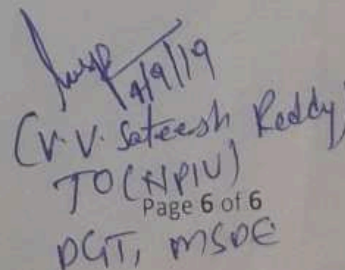 4/9/19
(V. V. Sateesh Reddy)
TO (NPIU)
Page 6 of 6
DGT, MSDE